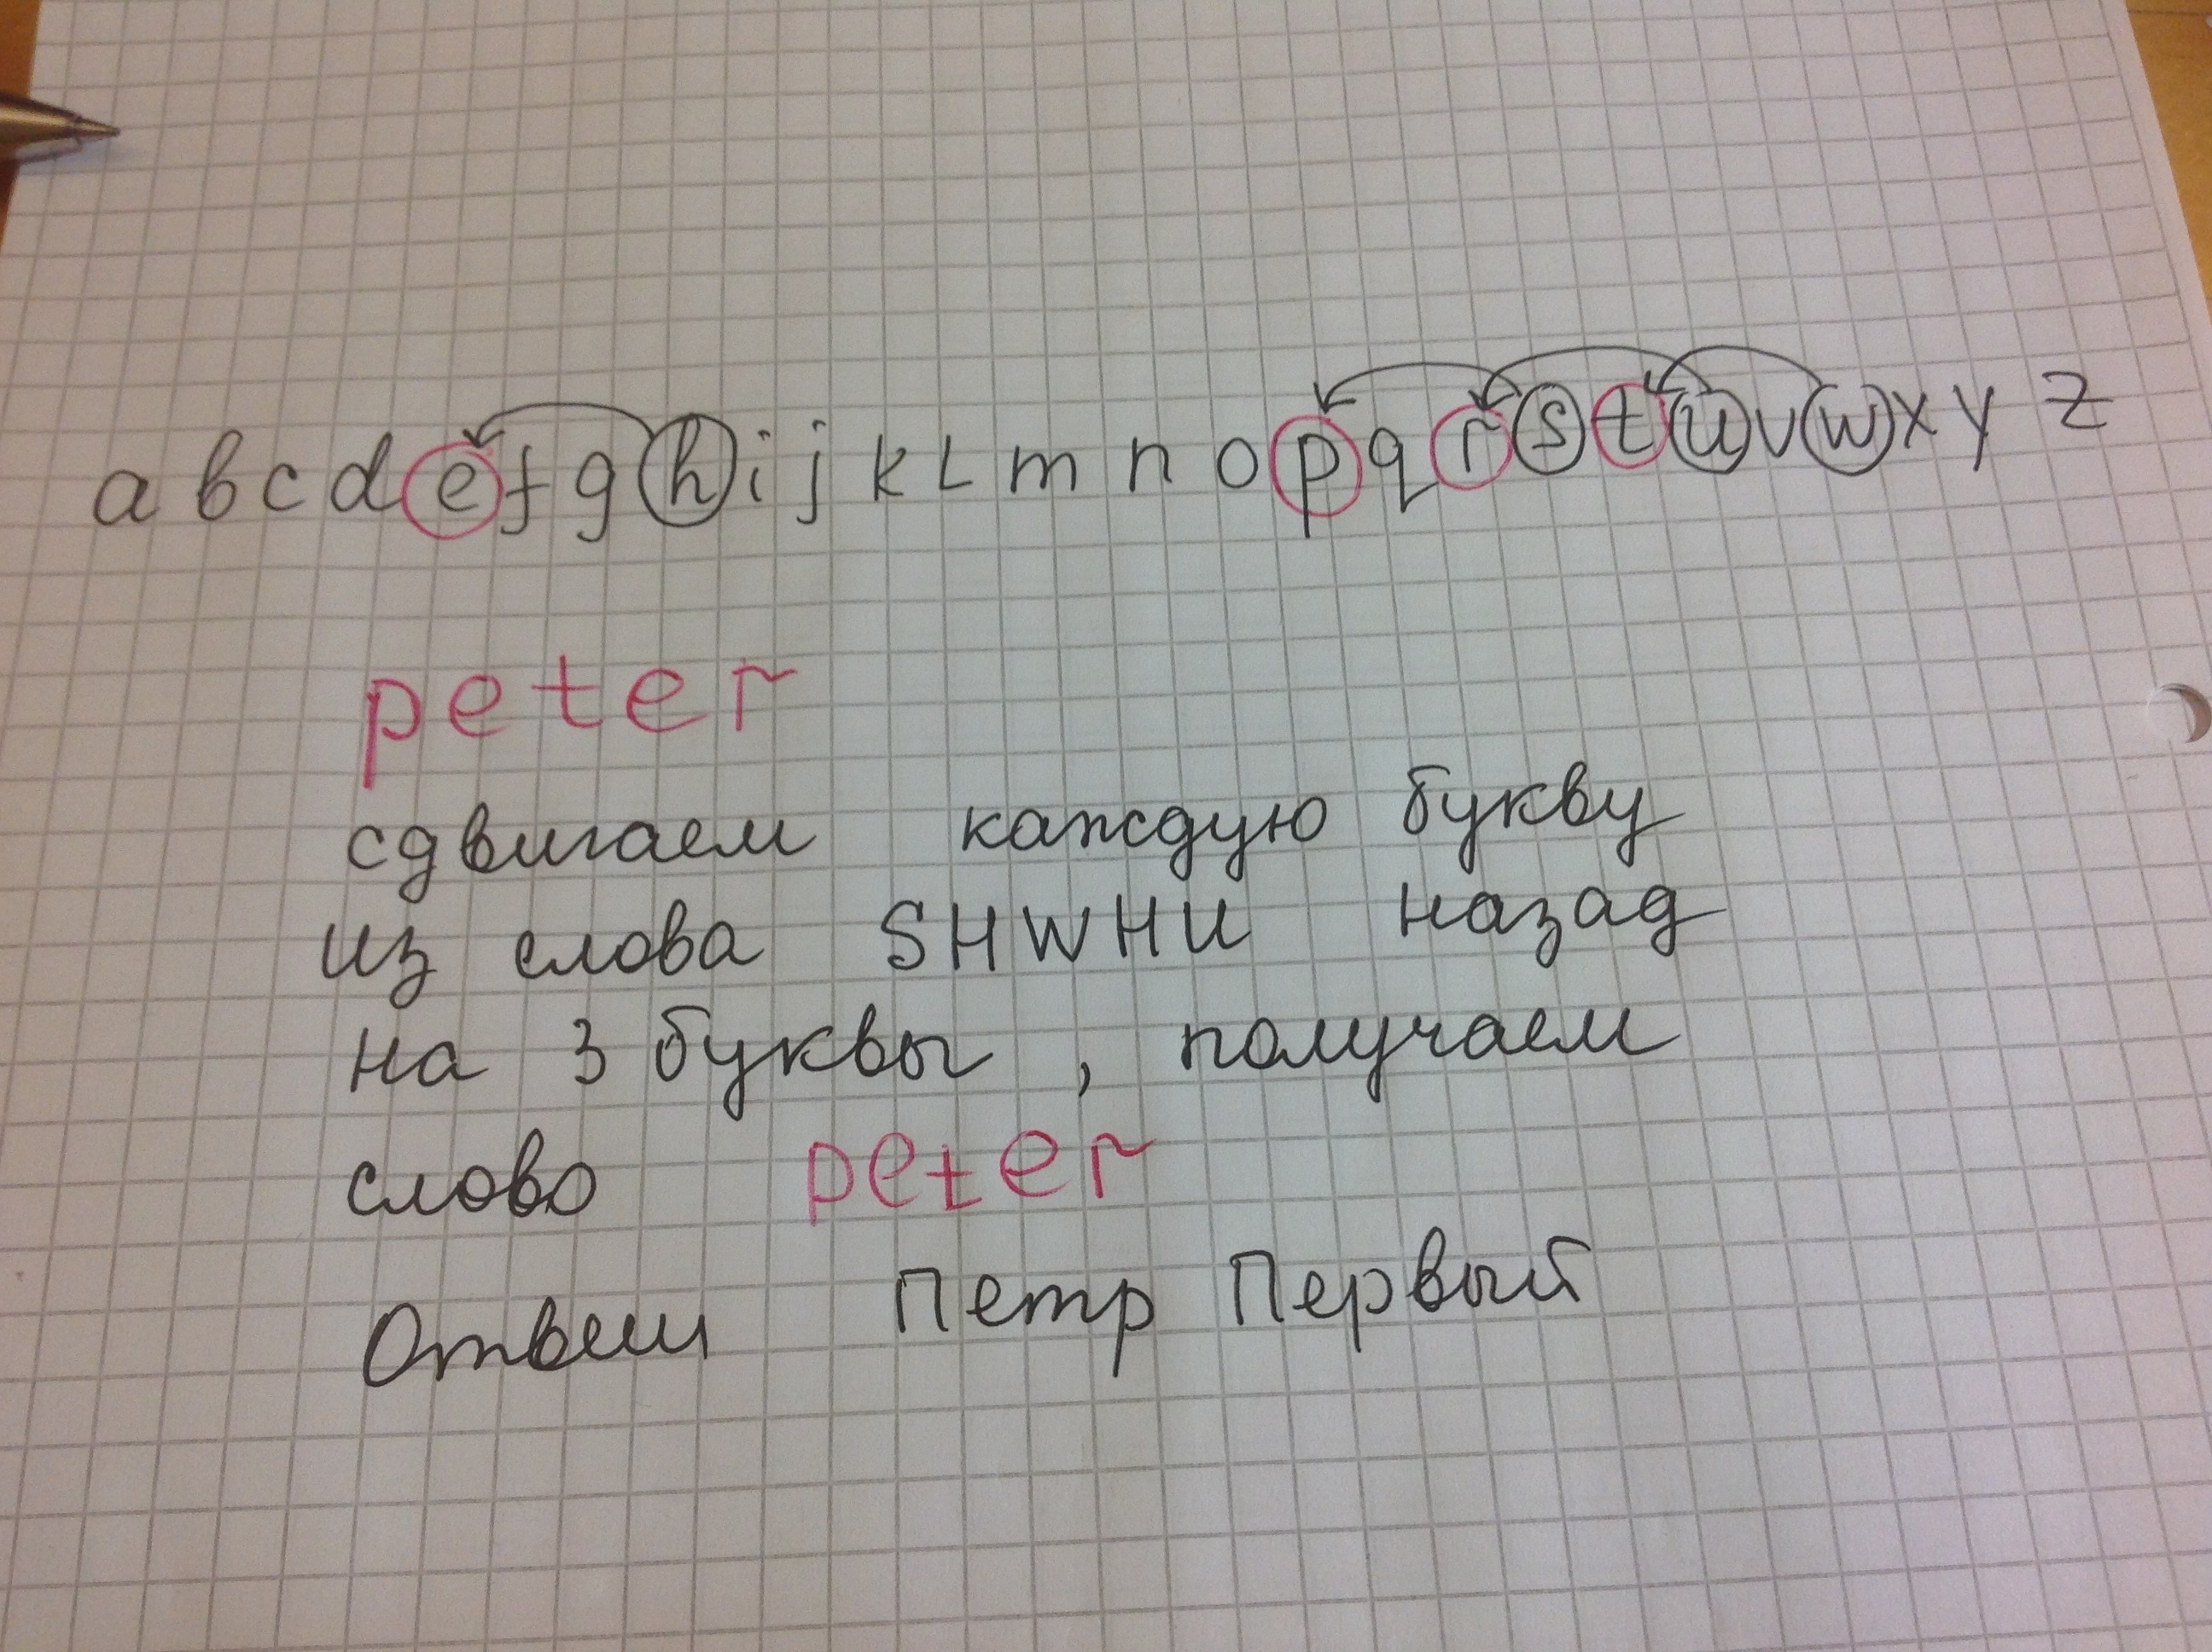 a b c d e f g h i j k L m n o p q r s t u v w x y z
peter
сдвигаем каждую букву
из слова SHWHU назад
на 3 буквы , получаем
слово peter
Ответ Петр Первый